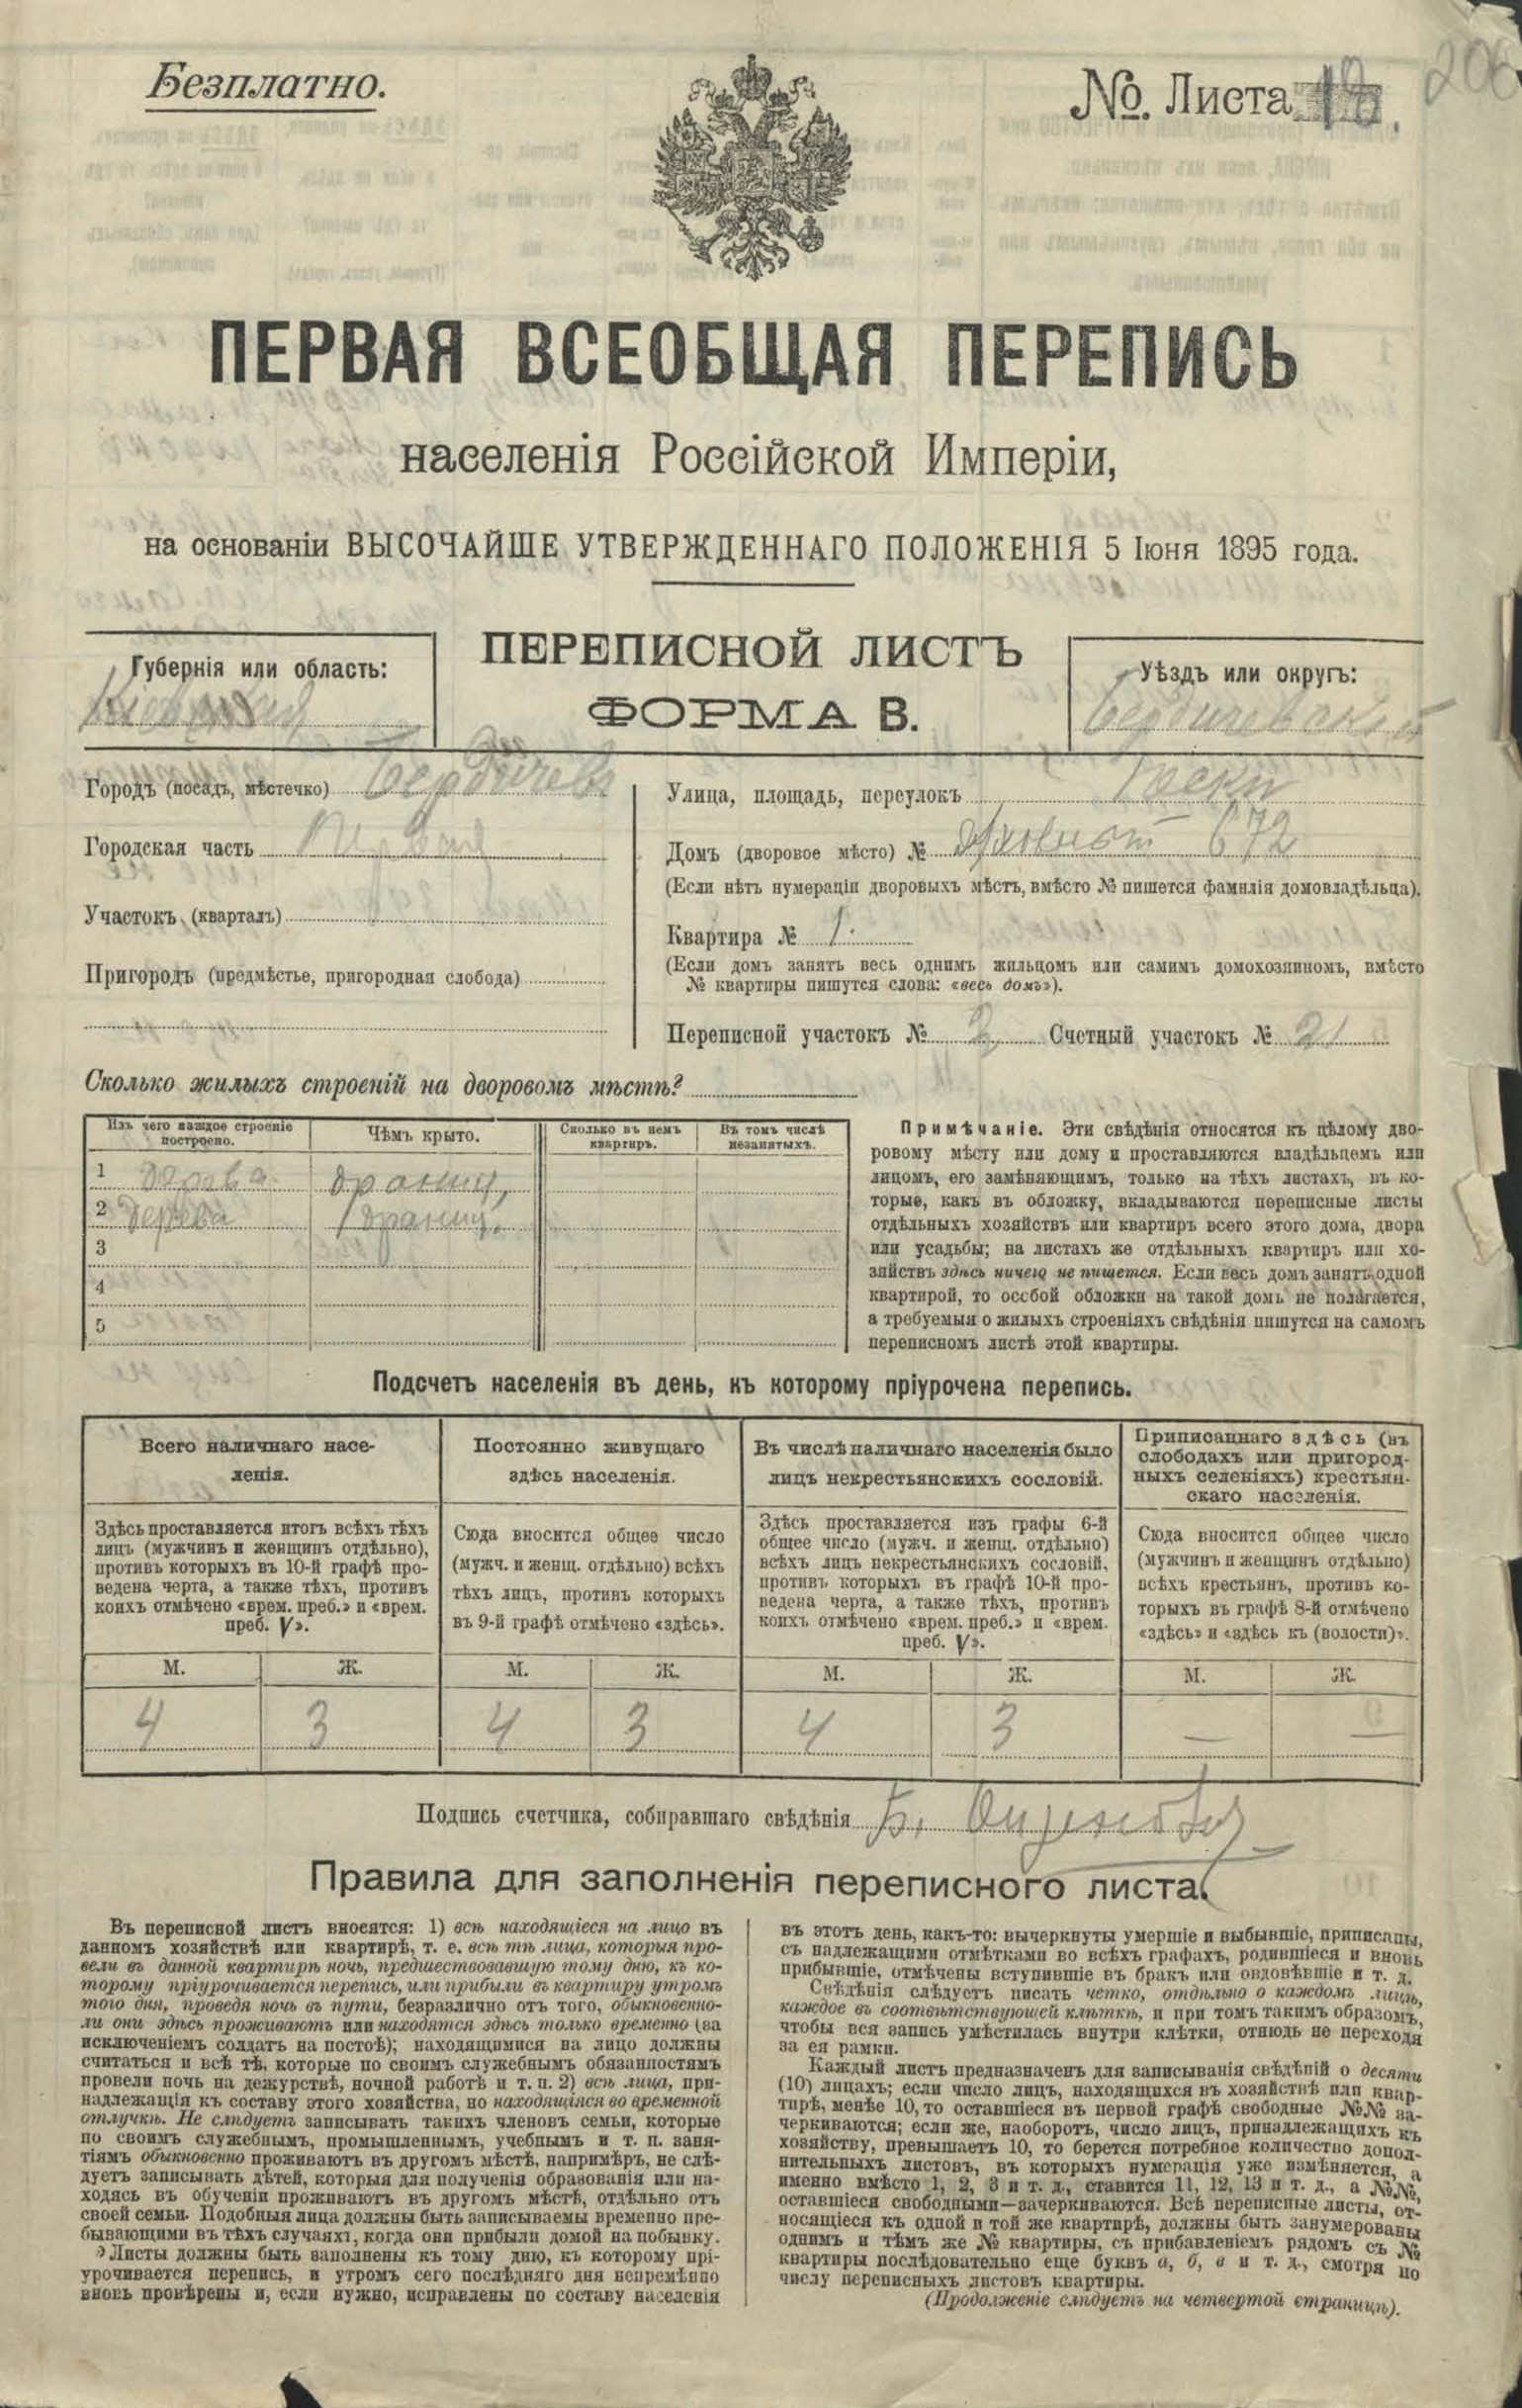 Безплатно.
№. Листа
206
ПЕРВАЯ ВСЕОБЩАЯ ПЕРЕПИСЬ
населенія Россійской Имперіи,
на основаніи ВЫСОЧАЙШЕ УТВЕРЖДЕННАГО ПОЛОЖЕНІЯ 5 Іюня 1895 года.
Губернія или область:
Кіевская
ПЕРЕПИСНОЙ ЛИСТЪ
ФОРМА В.
Уѣздъ или округъ:
Бердичевскій
Городъ (посадъ, мѣстечко) Бердичевъ
Городская часть
Участокъ (кварталъ)
Пригородъ (предмѣстье, пригородная слобода)
Улица, площадь, переулокъ Пески
Домъ (дворовое мѣсто) № 672
(Если нѣтъ нумераціи дворовыхъ мѣстъ, вмѣсто № пишется фамилія домовладѣльца).
Квартира № 1.
(Если домъ занятъ весь однимъ жильцомъ или самимъ домохозяиномъ, вмѣсто
№ квартиры пишутся слова: «весь домъ»).
Переписной участокъ № 2 Счетный участокъ № 21
Сколько жилыхъ строеній на дворовомъ мѣстѣ?
Изъ чего каждое строеніе построено.
Чѣмъ крыто.
Сколько въ немъ квартиръ.
Въ томъ числѣ незанятыхъ.
1 драниц,
2 дерева драниц,
3
4
5
Примѣчаніе. Эти свѣдѣнія относятся къ цѣлому дво-
ровому мѣсту или дому и проставляются владѣльцемъ или
лицомъ, его замѣняющимъ, только на тѣхъ листахъ, въ ко-
торые, какъ въ обложку, вкладываются переписные листы
отдѣльныхъ хозяйствъ или квартиръ всего этого дома, двора
или усадьбы; на листахъ же отдѣльныхъ квартиръ или хо-
зяйствъ здѣсь ничего не пишется. Если весь домъ занятъ одной
квартирой, то особой обложки на такой домъ не полагается,
а требуемыя о жилыхъ строеніяхъ свѣдѣнія пишутся на самомъ
переписномъ листѣ этой квартиры.
Подсчетъ населенія въ день, къ которому пріурочена перепись.
Всего наличнаго насе-
ленія.
Здѣсь проставляется итогъ всѣхъ тѣхъ
лицъ (мужчинъ и женщинъ отдѣльно),
противъ которыхъ въ 10-й графѣ про-
ведена черта, а также тѣхъ, противъ
коихъ отмѣчено «врем. преб.» и «врем.
преб. V».
Постоянно живущаго
здѣсь населенія.
Сюда вносится общее число
(мужч. и женщ. отдѣльно) всѣхъ
тѣхъ лицъ, противъ которыхъ
въ 9-й графѣ отмѣчено «здѣсь».
Въ числѣ наличнаго населенія было
лицъ некрестьянскихъ сословій.
Здѣсь проставляется изъ графы 6-й
общее число (мужч. и женщ. отдѣльно)
всѣхъ лицъ некрестьянскихъ сословій,
противъ которыхъ въ графѣ 10-й про-
ведена черта, а также тѣхъ, противъ
коихъ отмѣчено «врем. преб.» и «врем.
преб. V».
Приписаннаго здѣсь (въ
слободахъ или пригород-
ныхъ селеніяхъ) крестьян-
скаго населенія.
Сюда вносится общее число
(мужчинъ и женщинъ отдѣльно)
всѣхъ крестьянъ, противъ ко-
торыхъ въ графѣ 8-й отмѣчено
«здѣсь» и «здѣсь къ (волости)».
М. Ж. М. Ж. М. Ж. М. Ж.
4 3 4 3 4 3 — —
Подпись счетчика, собиравшаго свѣдѣнія Б.
Правила для заполненія переписного листа.
Въ переписной листъ вносятся: 1) всѣ находящіеся на лицо въ
данномъ хозяйствѣ или квартирѣ, т. е. всѣ тѣ лица, которыя про-
вели въ данной квартирѣ ночь, предшествовавшую тому дню, къ ко-
торому пріурочивается перепись, или прибыли въ квартиру утромъ
того дня, проведя ночь въ пути, безразлично отъ того, обыкновенно-
ли они здѣсь проживаютъ или находятся здѣсь только временно (за
исключеніемъ солдатъ на постоѣ); находящимися на лицо должны
считаться и всѣ тѣ, которые по своимъ служебнымъ обязанностямъ
провели ночь на дежурствѣ, ночной работѣ и т. п. 2) всѣ лица, при-
надлежащія къ составу этого хозяйства, но находящіяся во временной
отлучкѣ. Не слѣдуетъ записывать такихъ членовъ семьи, которые
по своимъ служебнымъ, промышленнымъ, учебнымъ и т. п. заня-
тіямъ обыкновенно проживаютъ въ другомъ мѣстѣ, напримѣръ, не слѣ-
дуетъ записывать дѣтей, которыя для полученія образованія или на-
ходясь въ обученіи проживаютъ въ другомъ мѣстѣ, отдѣльно отъ
своей семьи. Подобныя лица должны быть записываемы временно пре-
бывающими въ тѣхъ случаяхъ, когда они прибыли домой на побывку.
Листы должны быть заполнены къ тому дню, къ которому прі-
урочивается перепись, и утромъ сего послѣдняго дня непремѣнно
вновь провѣрены и, если нужно, исправлены по составу населенія
въ этотъ день, какъ-то: вычеркнуты умершіе и выбывшіе, приписаны,
съ надлежащими отмѣтками во всѣхъ графахъ, родившіеся и вновь
прибывшіе, отмѣчены вступившіе въ бракъ или овдовѣвшіе и т. д.
Свѣдѣнія слѣдуетъ писать четко, отдѣльно о каждомъ лицѣ,
каждое въ соотвѣтствующей клѣткѣ, и при томъ такимъ образомъ,
чтобы вся запись умѣстилась внутри клѣтки, отнюдь не переходя
за ея рамки.
Каждый листъ предназначенъ для записыванія свѣдѣній о десяти
(10) лицахъ; если число лицъ, находящихся въ хозяйствѣ или квар-
тирѣ, менѣе 10, то оставшіеся въ первой графѣ свободные №№ за-
черкиваются; если же, наоборотъ, число лицъ, принадлежащихъ къ
хозяйству, превышаетъ 10, то берется потребное количество допол-
нительныхъ листовъ, въ которыхъ нумерація уже измѣняется, а
именно вмѣсто 1, 2, 3 и т. д., ставится 11, 12, 13 и т. д., а №№
оставшіеся свободными—зачеркиваются. Всѣ переписные листы, от-
носящіеся къ одной и той же квартирѣ, должны быть занумерованы
однимъ и тѣмъ же № квартиры, съ прибавленіемъ рядомъ съ №
квартиры послѣдовательно еще буквъ а, б, в и т. д., смотря по
числу переписныхъ листовъ квартиры.
(Продолженіе слѣдуетъ на четвертой страницѣ).